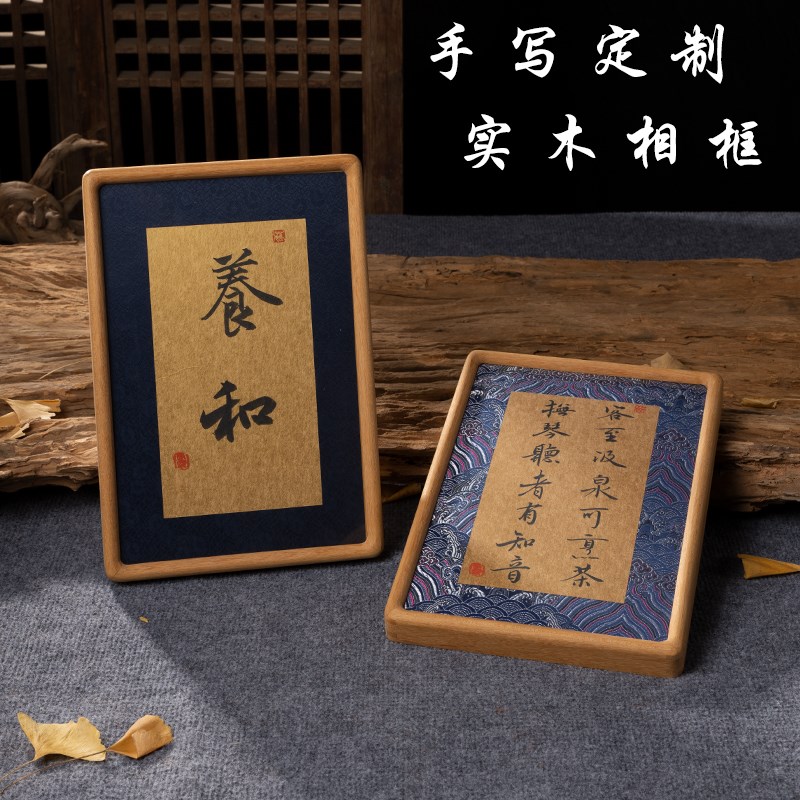 手写定制
实木相框
養和
客至汲泉可烹茶
撫琴聽者有知音